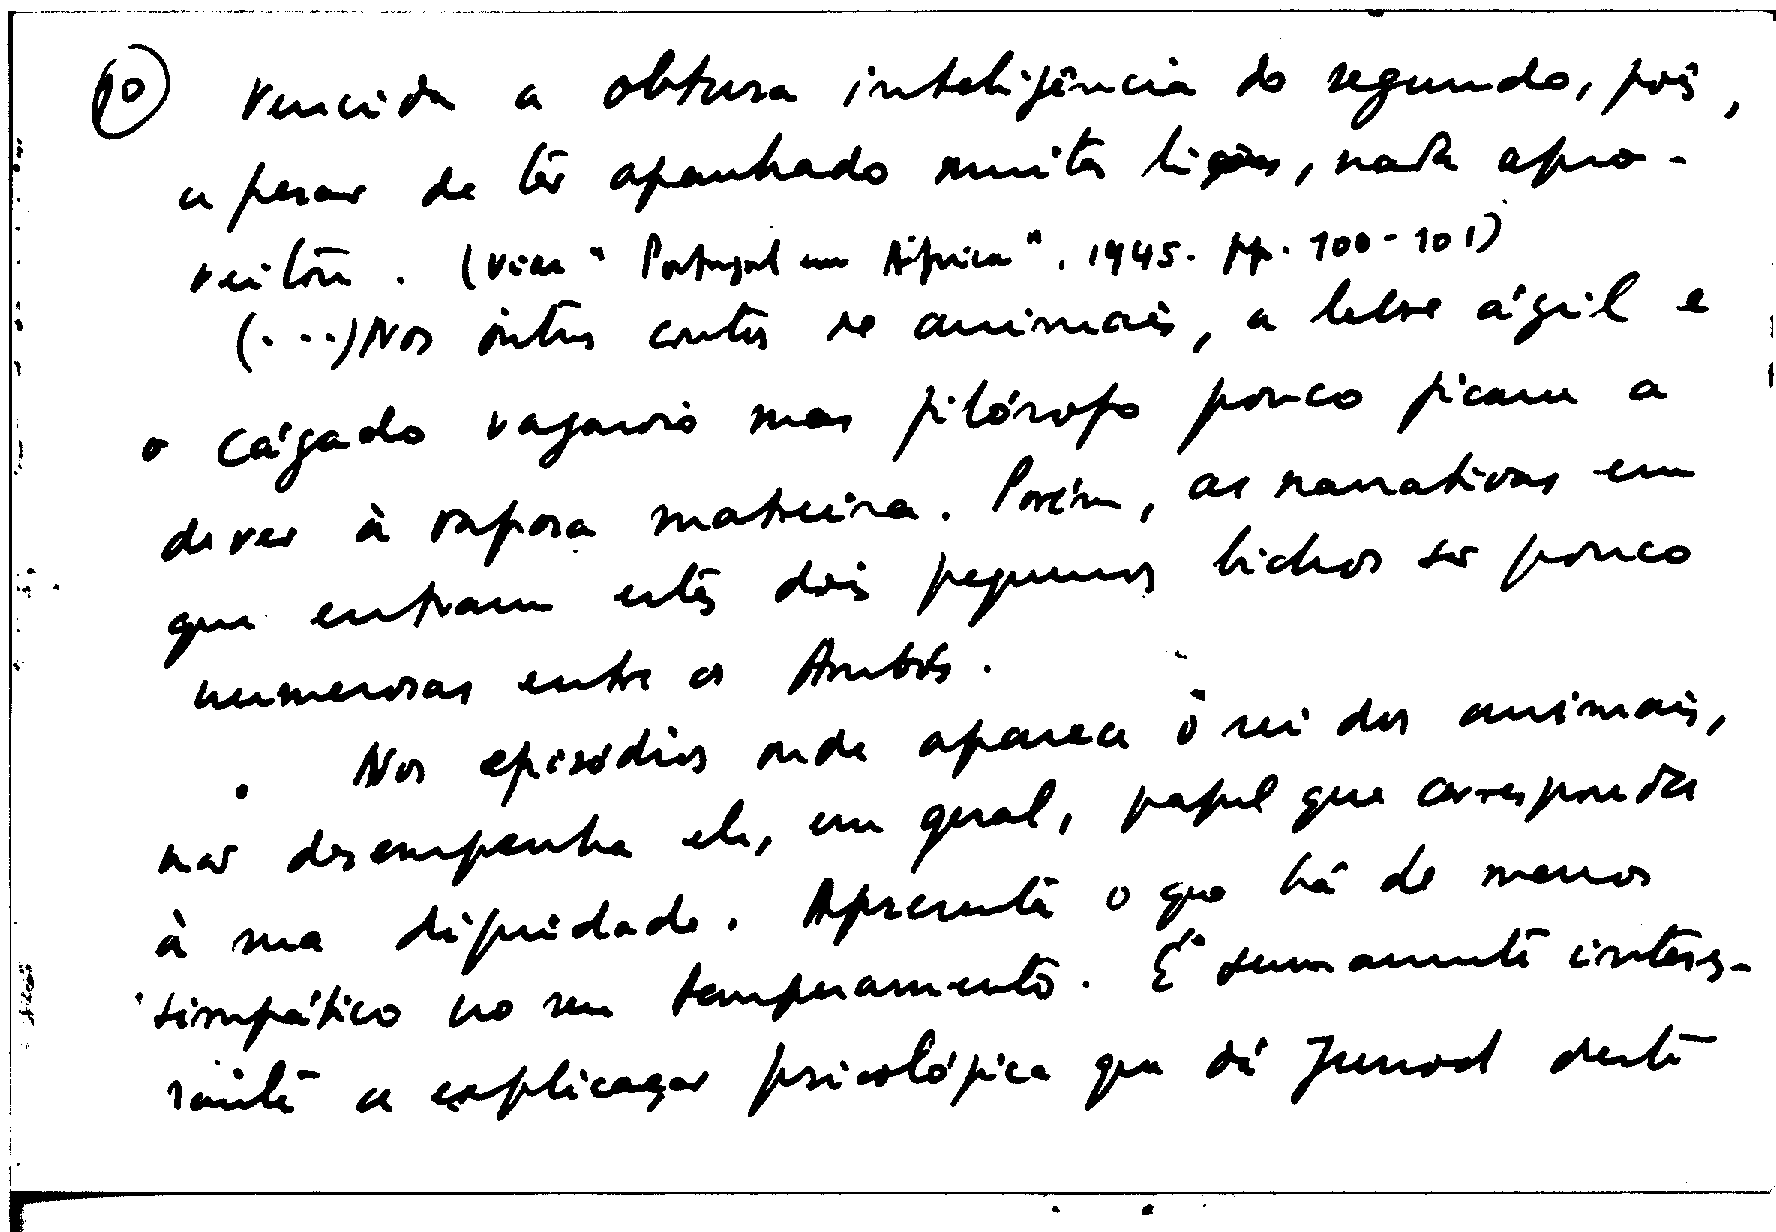 10 vencida a obtusa inteligência do segundo, pois,
apesar de ter apanhado muitas lições, nada apro-
veitou. (Vide "Portugal em África". 1945. pp. 100-101)
(...) Nos outros contos de animais, a lebre ágil e
o cágado vagaroso mas filósofo pouco ficam a
dever à raposa matreira. Porém, as narrativas em
que entram estes dois pequenos bichos são pouco
numerosas entre os Ambós.
Nos episódios onde aparece o rei dos animais,
não desempenha ele, em geral, papel que corresponda
à sua dignidade. Apresenta o que há de menos
simpático no seu temperamento. É sumamente interes-
sante a explicação psicológica que dá Junod deste